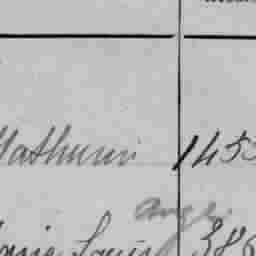 Mathurin 1453
Ange
Marie Louise 386